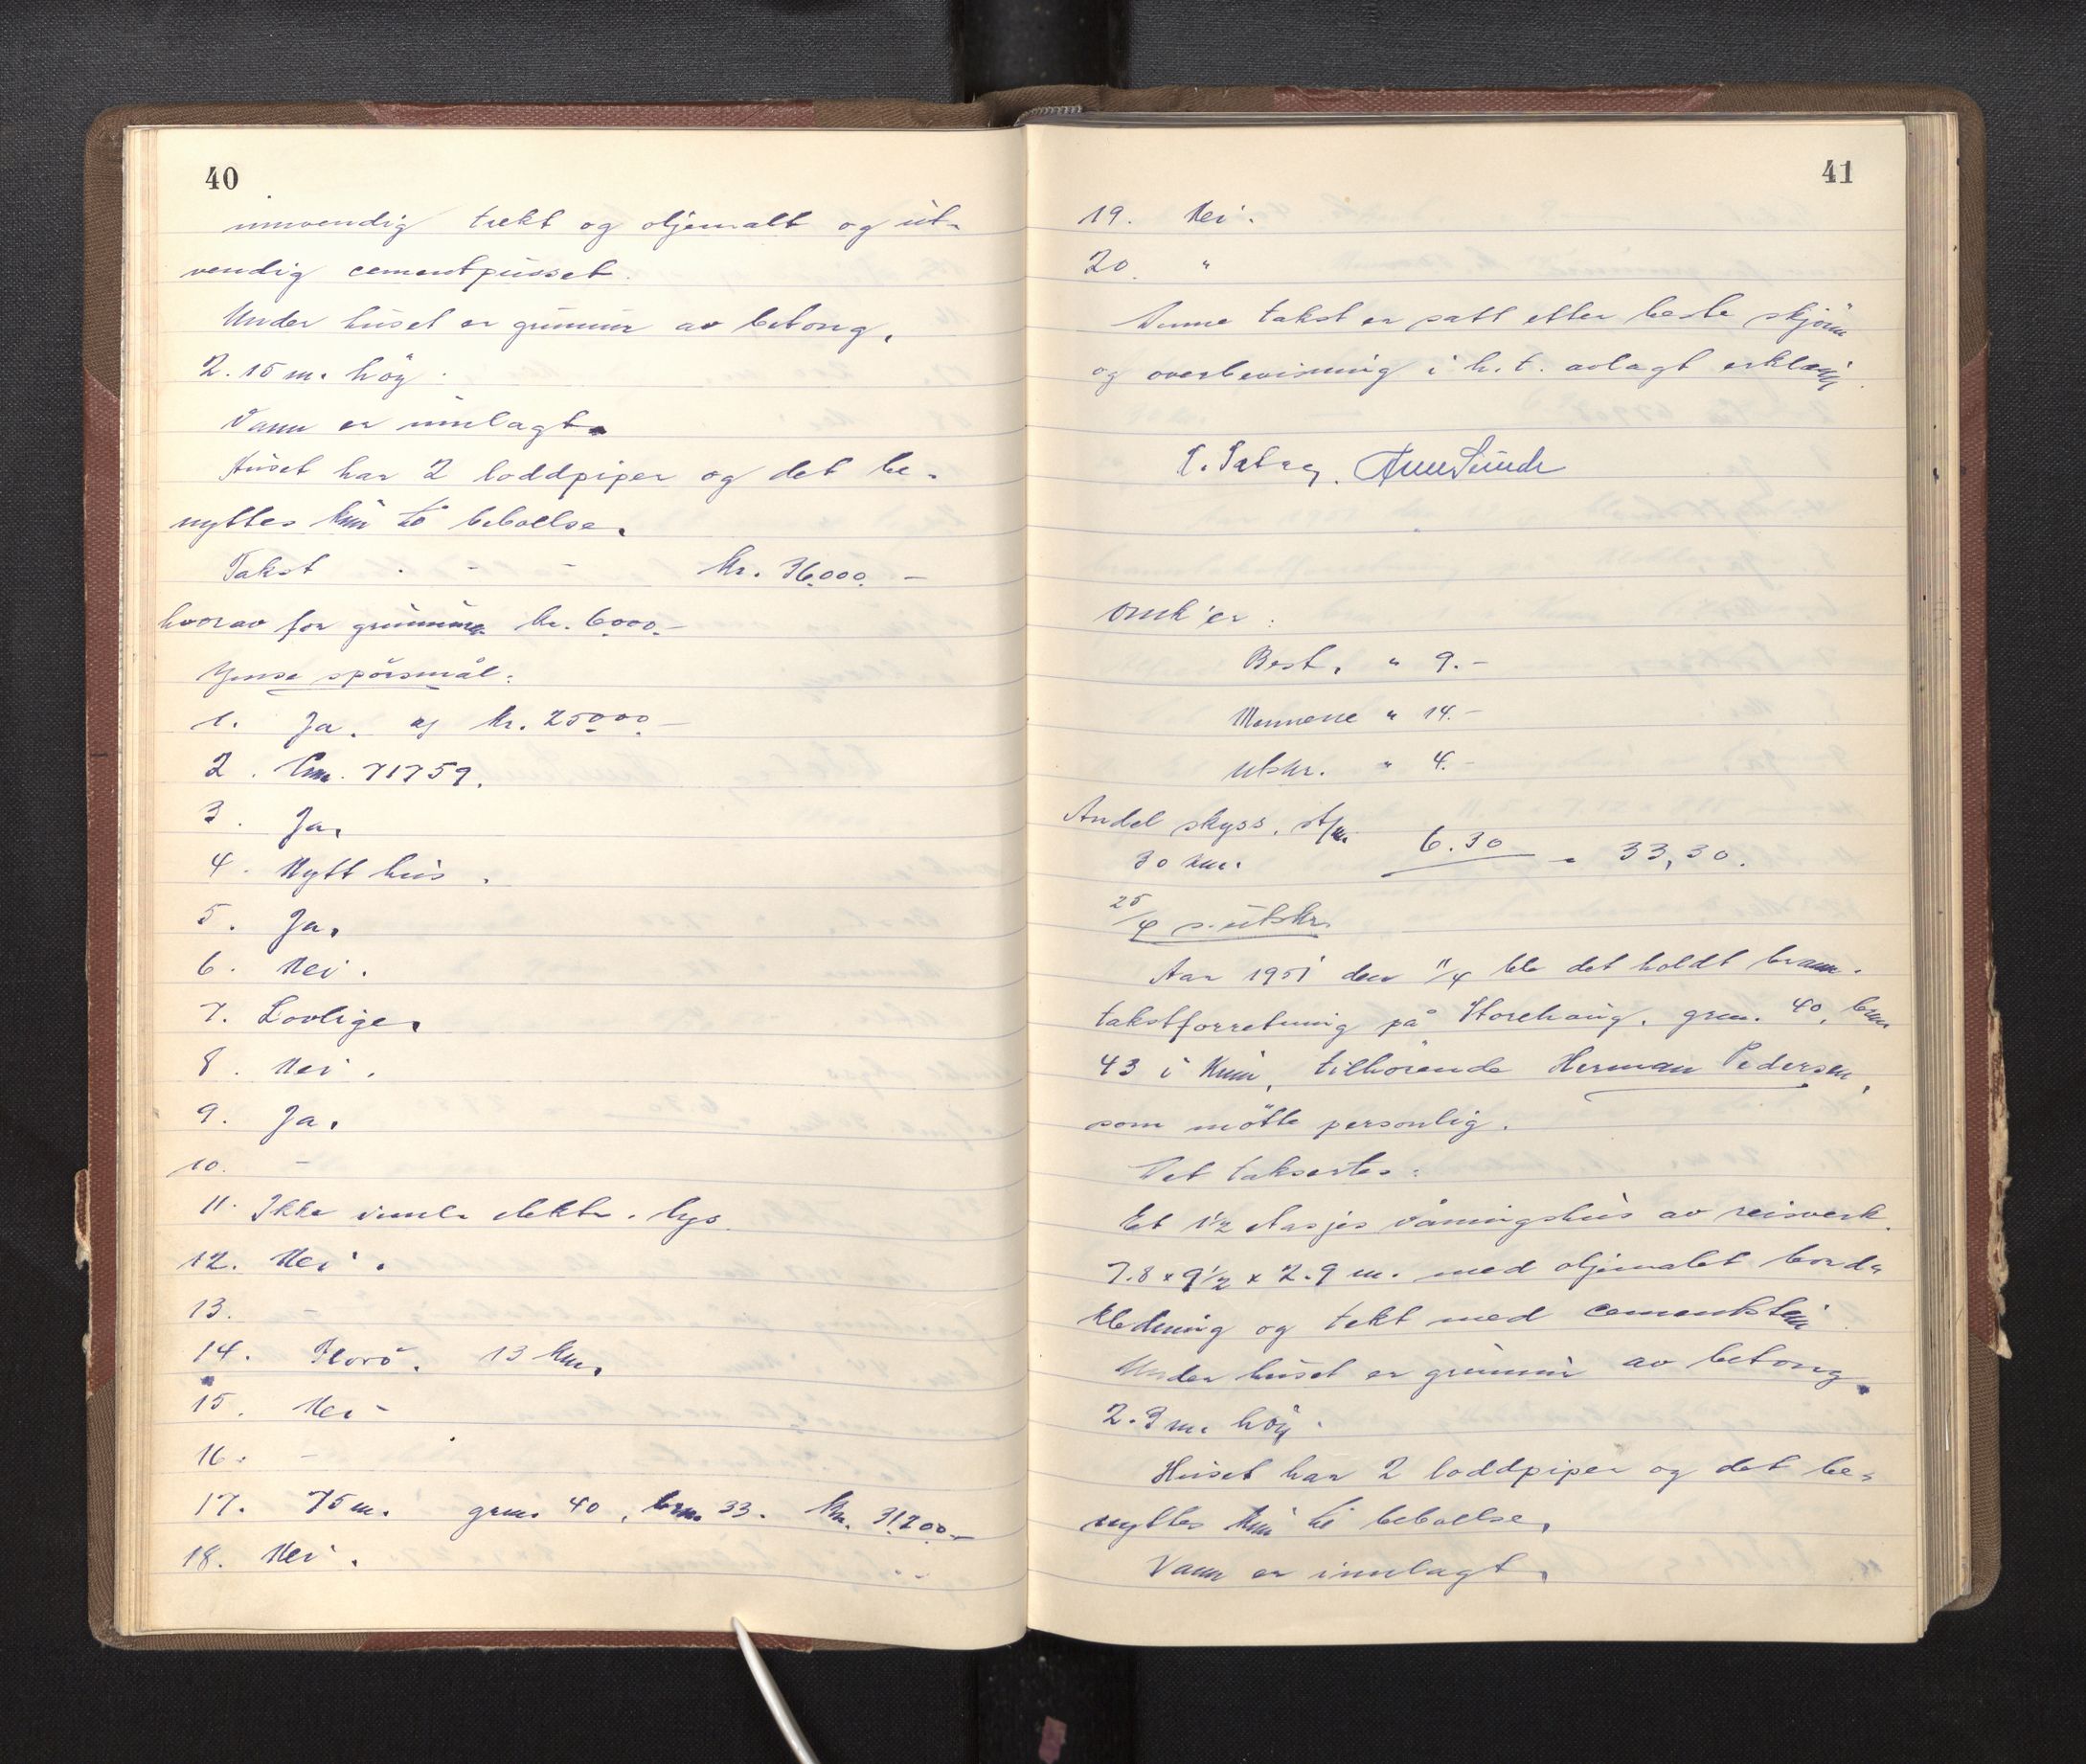 40
innvendig trekt og oljemalt og ut-
vendig cementpusset.
Under huset er grunmur av betong,
2.15 m. höy.
Vann er innlagt.
Huset har 2 loddpiper og det be-
nyttes kun til beboelse.
Takst - - - kr. 36.000.-
hvorav for grunmur kr. 6000.-
Ymse spörsmål:
1. Ja. kr. 25000.-
2. 71759.
3. Ja.
4. Nytt hus.
5. Ja.
6. Nei.
7. Lovlige.
8. Nei.
9. Ja.
10. -
11. Ikke innl. elektr. lys.
12. Nei.
13. -
14. Florö. 13 km.
15. Nei -
16. -
17. 75 m. grn. 40, brn. 33. kr. 31200.-
18. Nei.
41
19. Nei.
20. "
Denne takst er satt etter beste skjönn
og overbevisning i h.t. avlagt erklæring.
Omk'er:
Best. " 9.-
Mennene " 14.-
Utskr. " 4.-
Andel skyss.
30 km. 6.30 = 33,30.
25/4 s. utskr.
Aar 1951 den 11/4 ble det holdt brann-
takstforretning på Storehaug, grn. 40, brn.
43 i Kinn, tilhörende Herman Pedersen,
som mötte personlig.
Det takseres:
Et 1½ etasjes våningshus av reisverk.
7.8 x 9½ x 2.9 m. med oljemalet bord-
kledning og tekt med cementstein.
Under huset er grunmur av betong,
2.3 m. höy.
Huset har 2 loddpiper og det be-
nyttes kun til beboelse.
Vann er innlagt.